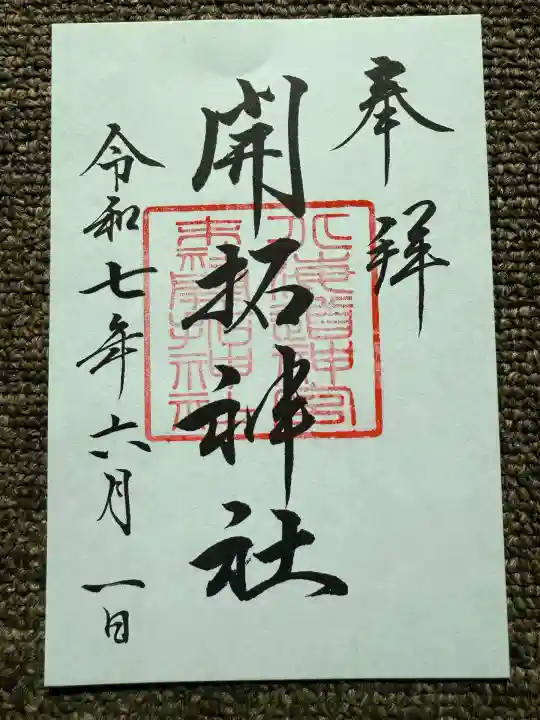 奉拜
開拓神社
令和七年六月一日
北海道神宮
末社開拓神社